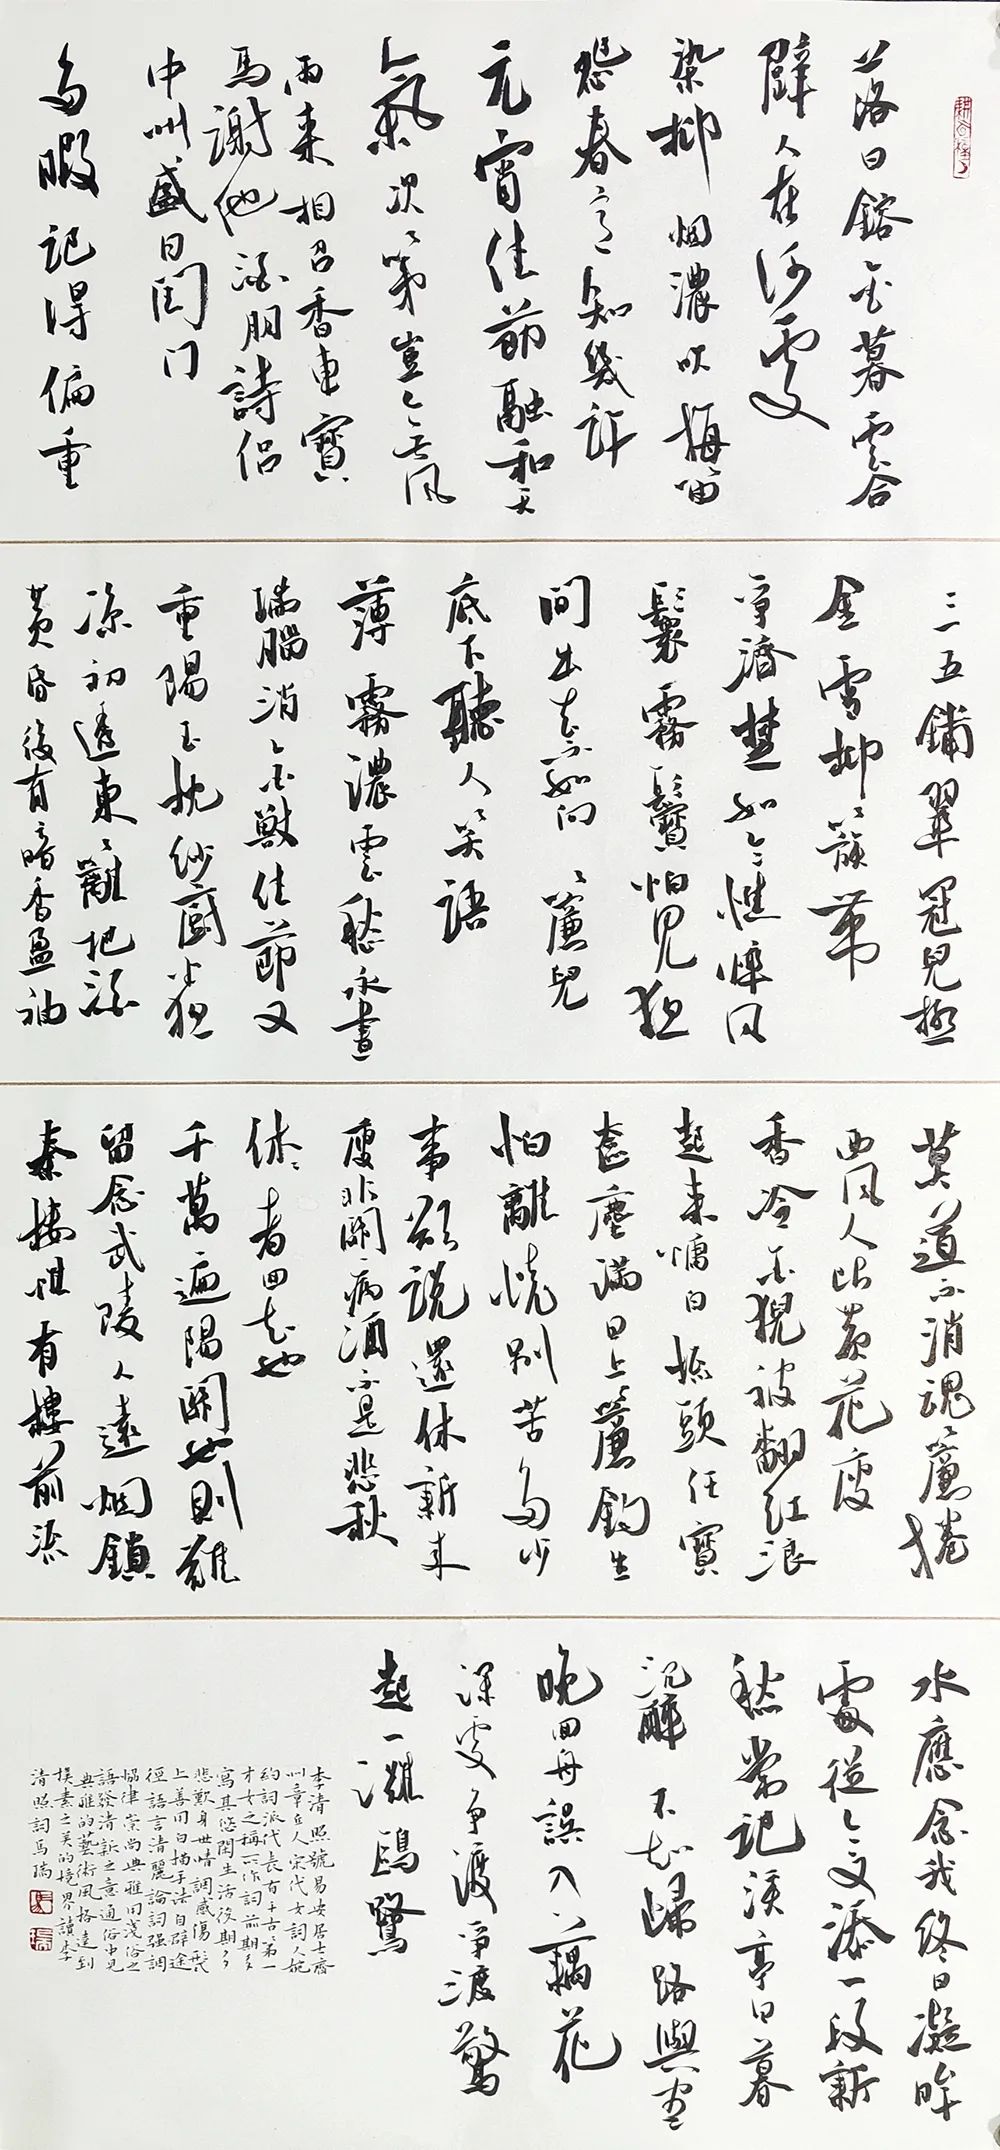 落日鎔金暮雲合
璧人在何處
染柳烟濃吹梅笛
怨春意知幾許
元宵佳節融和天
氣次第豈無風
雨來相召香車寶
馬謝他酒朋詩侶
中州盛日閨門
多暇記得偏重
三五鋪翠冠兒撚
金雪柳簇帶
爭濟楚如今憔悴風
鬟霧鬢怕見夜
間出去不如向簾兒
底下聽人笑語
薄霧濃雲愁永晝
瑞腦消金獸佳節又
重陽玉枕紗厨半夜
涼初透東籬把酒
黃昏後有暗香盈袖
莫道不消魂簾捲
西風人比黃花瘦
香冷金猊被翻紅浪
起來慵自梳頭任寶
奩塵滿日上簾鉤生
怕離懷別苦多少
事欲說還休新來
瘦非關病酒不是悲秋
休休者回去也
千萬遍陽關也則難
留念武陵人遠烟鎖
秦樓惟有樓前流
水應念我終日凝眸
處從今又添一段新
愁常記溪亭日暮
沉醉不知歸路興盡
晚回舟誤入藕花
深處爭渡爭渡驚
起一灘鷗鷺
李清照號易安居士齊
州章丘人宋代女詞人婉
約詞派代表有千古第一
才女之稱所作詞前期多
寫其悠閑生活後期多
悲歎身世情調感傷形式
上善用白描手法自辟途
徑語言清麗論詞强調
協律崇尚典雅用淺俗之
語發清新之意通俗中見
典雅的藝術風格達到
樸素之美的境界讀李
清照詞馬瑞